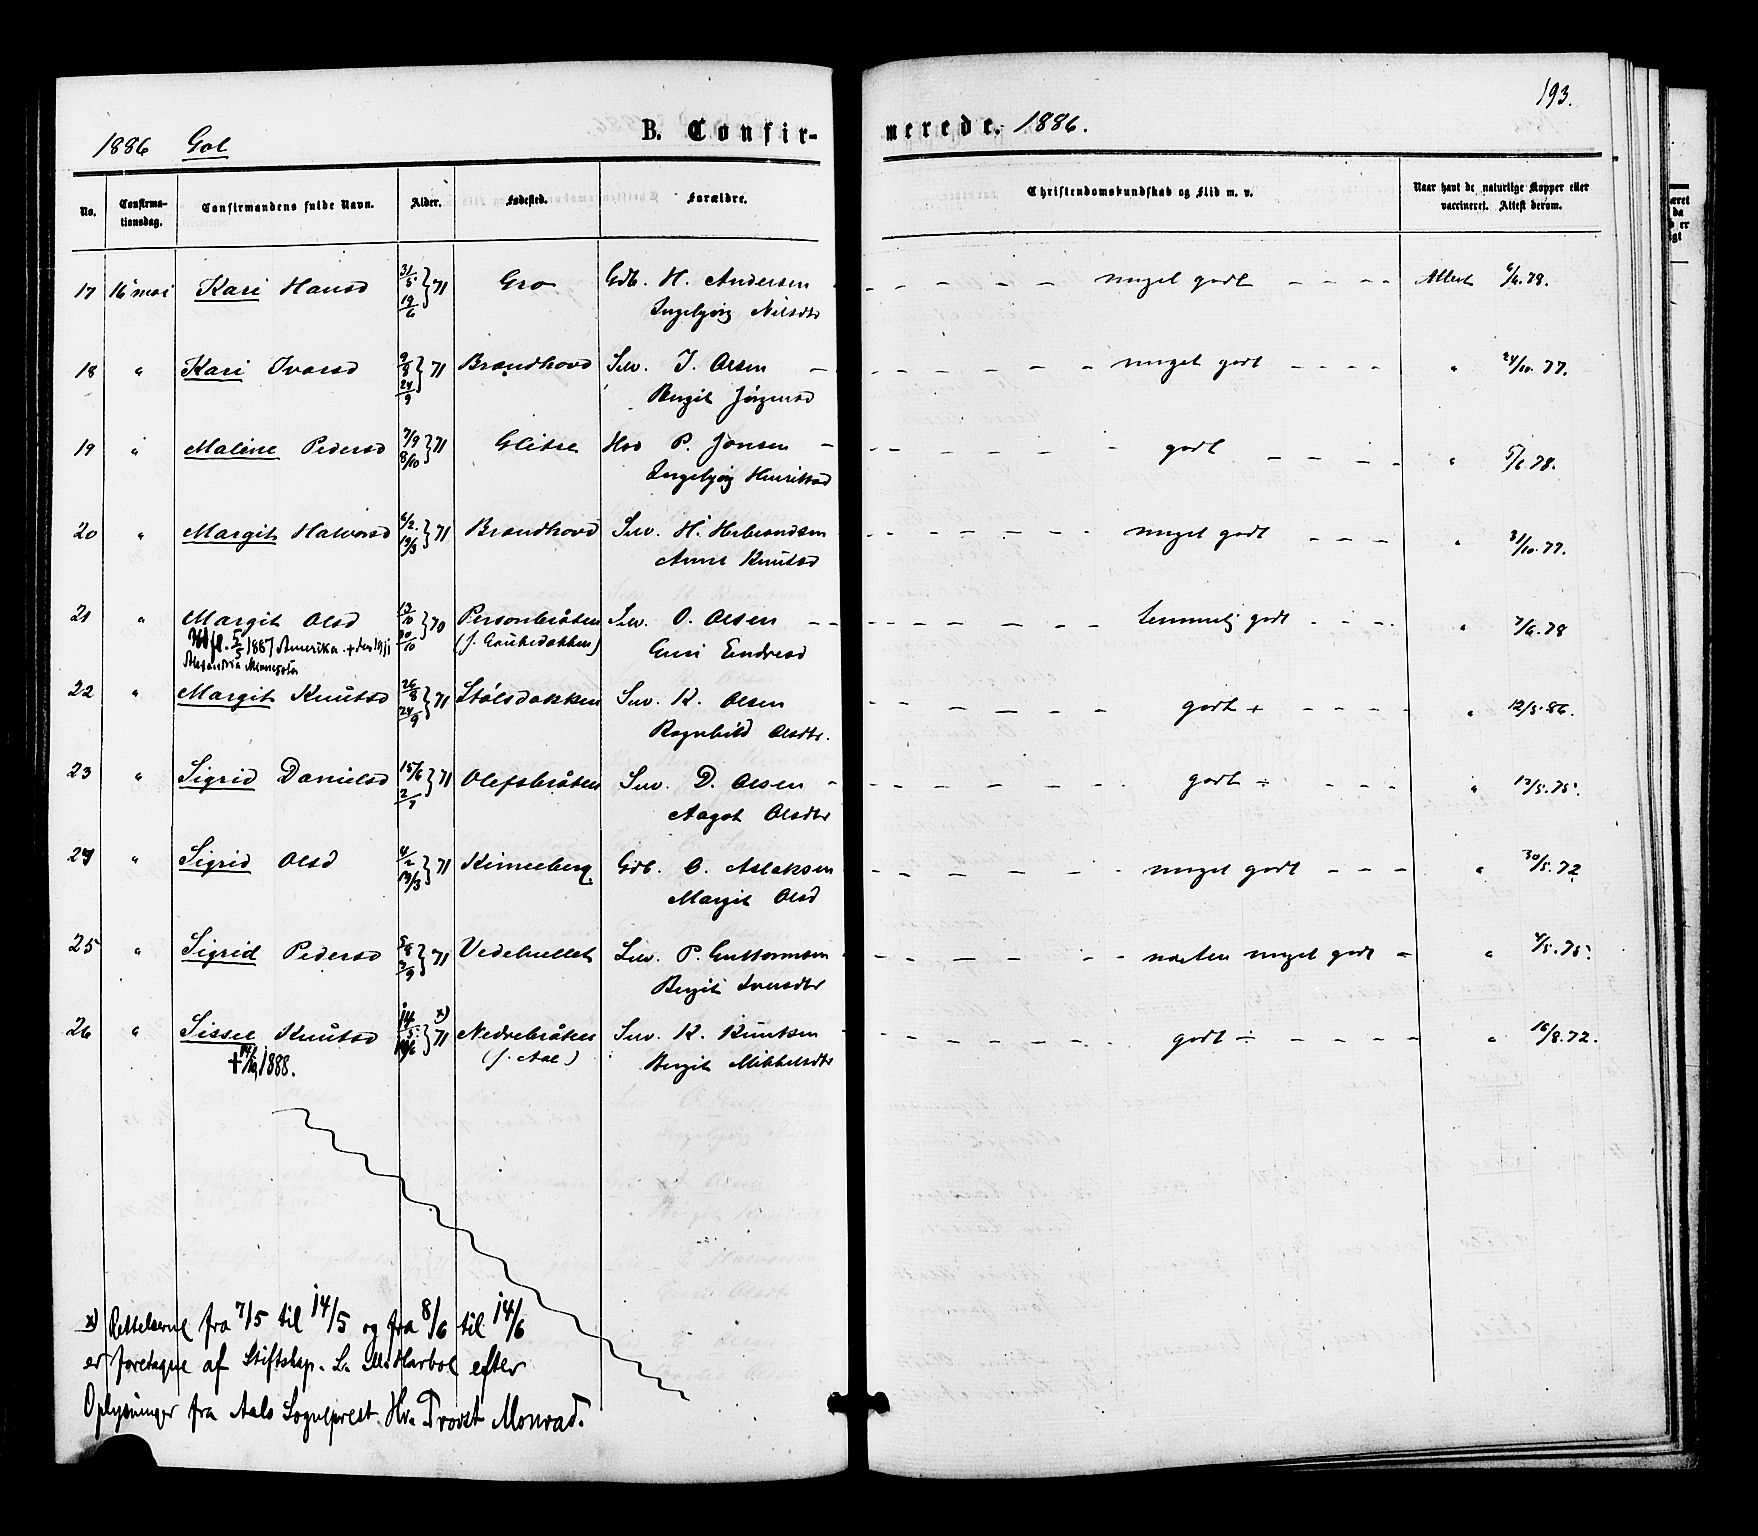 193.
1886 Gol B. Confir- merede. 1886.
No. Confirma-tionsdag. Confirmandens fulde Navn. Alder. Fødested. Forældre. Christendomskundskab og Flid m. v. Naar havt de naturlige Kopper eller vaccineret. Attest derom.
17 16 mai Kari Hansd 31/5 19/6 } 71 Gro Gdb. H. Andersen - - - - - - meget godt - - - - Attest 6/6.78.
Ingebjørg Nilsdtr
18 " Kari Ivarsd 9/8 24/9 } 71 Brandhovd Selv. I. Olsen - - - - - - - meget godt - - - - " 24/10.77.
Birgit Jørgensd
19 " Maline Pedersd 7/9 8/10 } 71 Glitre Hos P. Jonsen - - - - - - - godt - - - - " 5/6.78.
Ingebjørg Henriksd
20 " Margit Halvorsd 6/2. 19/3 } 71 Brandhovd Selv. H. Herbrandsen - - - - - - meget godt - - - " 31/10.77.
Anne Knutsd
21 " Margit Olsd 13/10 30/10 } 70 Personbråten Selv. O. Olsen - - - - - - - temmelig godt - - - " 7/6.78
(f. ) Guri Endresd
5/5 1887 Amerika. + des 1911
Alexandria Minnesota
22 " Margit Knutsd 26/8 24/9 } 71 Stølsdokken Selv. K. Olsen - - - - - - godt + - - - - " 12/5.86.
Ragnhild Olsdtr.
23 " Sigrid Danielsd 15/6 2/7 } 71 Olefsbråten Selv. D. Olsen - - - - - - - godt ÷ - - - " 12/5.75.
Aagot Olsdtr
24 " Sigrid Olsd 4/2 19/3 } 71 Kinneberg Gdb. O. Aslaksen - - - - - - meget godt - - - " 30/5.72
Margit Olsd
25 " Sigrid Pedersd 5/8 3/9 } 71 Vedehullet Selv. P. Guttormsen - - - - - - næsten meget godt - " 4/5.75.
Birgit Iversdtr
26 " Sissel Knutsd 14/5 14/6 } 71 x) Nedrebråten Selv. K. Knutsen - - - - - - godt ÷ - - - - " 16/8.72.
+ 1888. (f. Aal) Birgit Mikkelsdtr
x) Rettelserne fra 7/5 til 14/5 og fra 8/6 til 14/6
er foretagne af Stiftskap. efter
Oplysninger fra Aals Sogneprest. Hr. Provst Monrad.